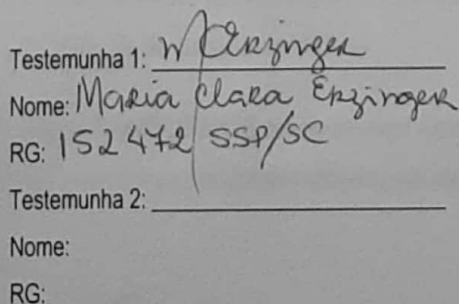 Testemunha 1: MCErzinger
Nome: Maria Clara Erzinger
RG: 152472 SSP/SC
Testemunha 2:
Nome:
RG: